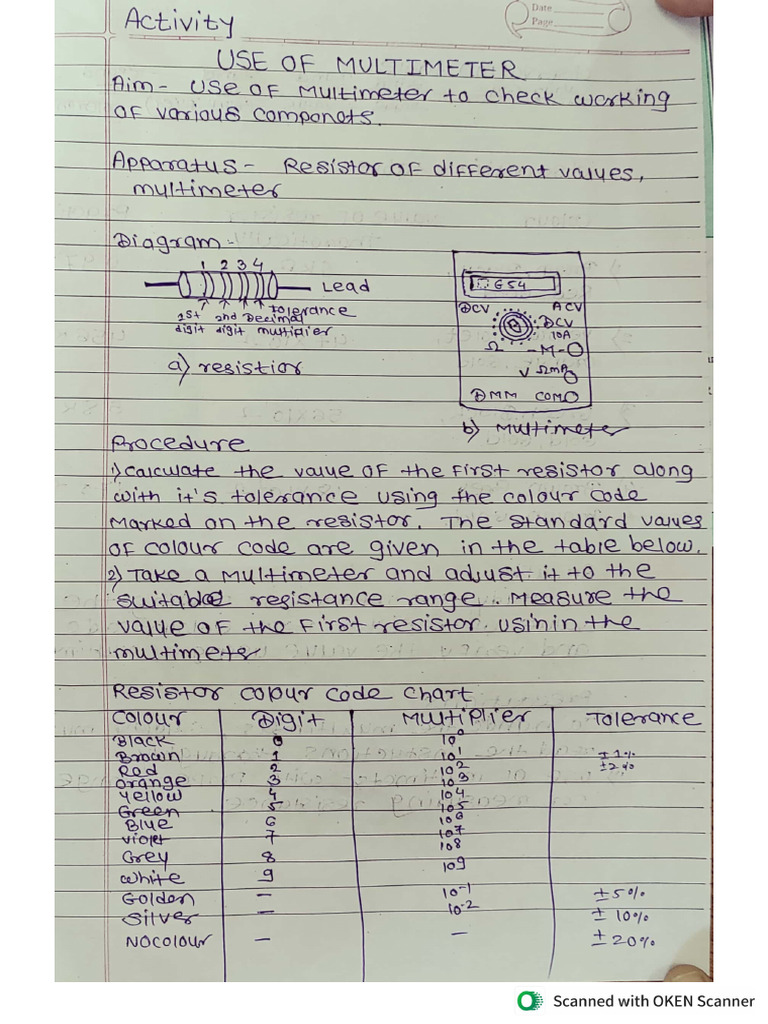 Activity
Date
Page
USE OF MULTIMETER
Aim - Use of Multimeter to check working
of various componets.
Apparatus - Resistor of different values,
multimeter
Diagram -
1 2 3 4
Lead
1st 2nd Decimal tolerance
digit digit multiplier
a) resistior
654
DCV ACV
DCV
10A
Ω -M-O
V ΩmA
DMM COM
b) Multimeter
Procedure
1) calculate the value of the first resistor along
with it's tolerance using the colour code
Marked on the resistor. The standard values
of colour code are given in the table below.
2) Take a multimeter and adjust it to the
suitable resistance range. Measure the
value of the first resistor. usinin the
multimeter
Resistor colour code chart
Colour Digit Multiplier Tolerance
Black 0 10⁰
Brown 1 10¹ ±1%
Red 2 10² ±2%
orange 3 10³
yellow 4 10⁴
Green 5 10⁵
Blue 6 10⁶
violet 7 10⁷
Grey 8 10⁸
white 9 10⁹
Golden - 10⁻¹ ±5%
Silver - 10⁻² ±10%
NOCOLOUR - - ±20%
Scanned with OKEN Scanner